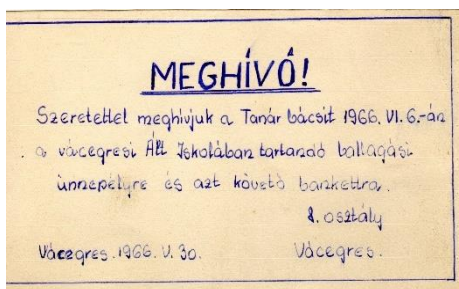 MEGHÍVÓ!
Szeretettel meghívjuk a Tanár bácsit 1966. VI. 6.-án
a vácegresi Áll Iskolában tartandó ballagási
ünnepélyre és azt követő bankettra.
8. osztály
Vácegres. 1966. V. 30. Vácegres.